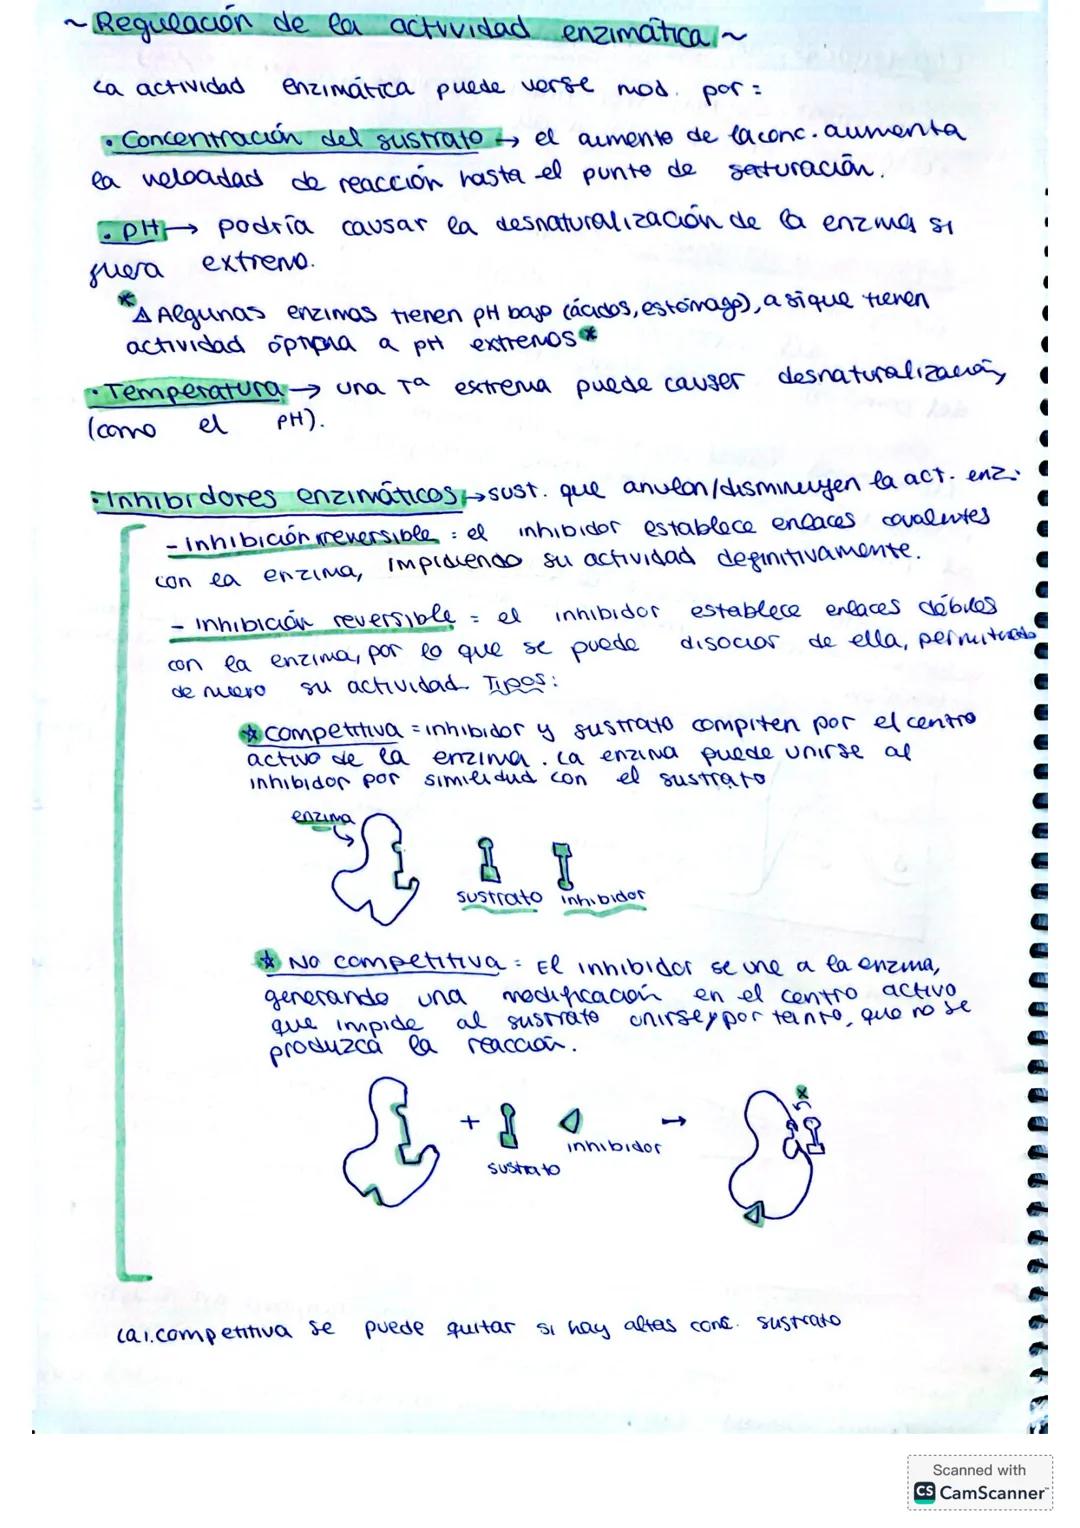 ~ Regulación de la actividad enzimática ~
La actividad enzimática puede verse mod. por:
· Concentración del sustrato → el aumento de la conc. aumenta
la velocidad de reacción hasta el punto de saturación.
· PH → podría causar la desnaturalización de la enzima si
fuera extremo.
* Δ Algunas enzimas tienen pH bajo (ácidos, estómago), asique tienen
actividad óptima a pH extremos *
· Temperatura → una Tª extrema puede causar desnaturalización,
(como el PH).
· Inhibidores enzimáticos → sust. que anulan/disminuyen la act. enz.:
- Inhibición irreversible : el inhibidor establece enlaces covalentes
con la enzima, impidiendo su actividad definitivamente.
- Inhibición reversible = el inhibidor establece enlaces débiles
con la enzima, por lo que se puede disociar de ella, permitiendo
de nuevo su actividad. Tipos:
☆ Competitiva = inhibidor y sustrato compiten por el centro
activo de la enzima. La enzima puede unirse al
inhibidor por similidud con el sustrato
enzima
sustrato inhibidor
☆ No competitiva : El inhibidor se une a la enzima,
generando una modificación en el centro activo
que impide al sustrato unirse y por tanto, que no se
produzca la reacción.
+ → x
inhibidor
sustrato
La i. competitiva se puede quitar si hay altas conc. sustrato
Scanned with
CS CamScanner